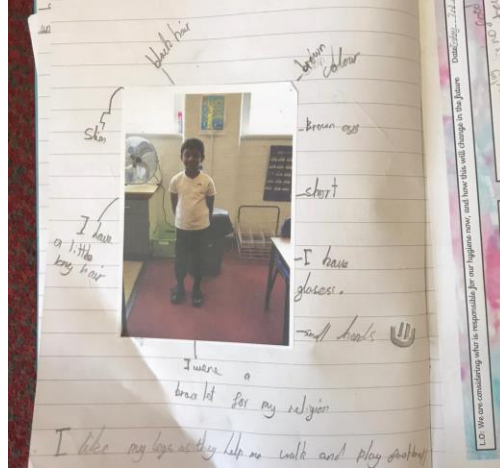 black hair
brown
colour
Skin
Brown eys
short
I have
a little
long hair
I have
glasess.
small hands
I were a
bracelet for my religion
I like my legs as they help me walk and play football
L.O: We are considering who is responsible for our hygiene now, and how this will change in the future
Date